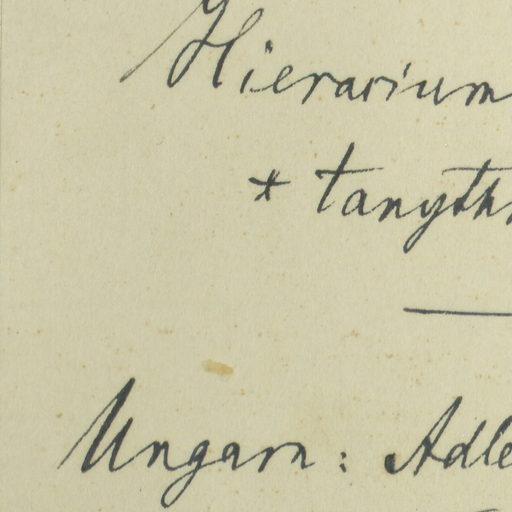 Hieracium
* tanyth
Ungarn: Adle